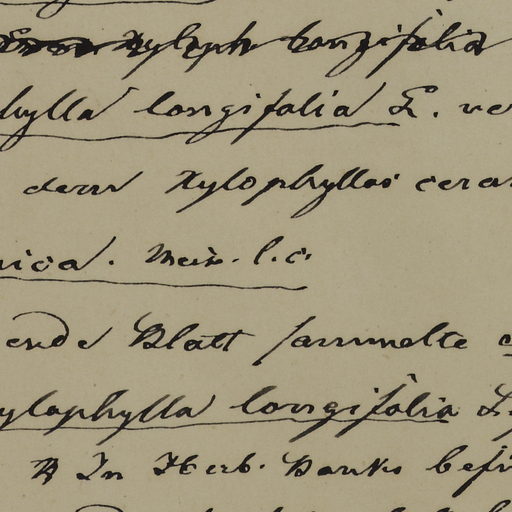 Xyloph longifolia
hylla longifolia L. ve
dem Xylophyllos cera
nica. Meis. l.c.
ende Blatt sammelte
ylophylla longifolia L.
In Herb. Banks befi